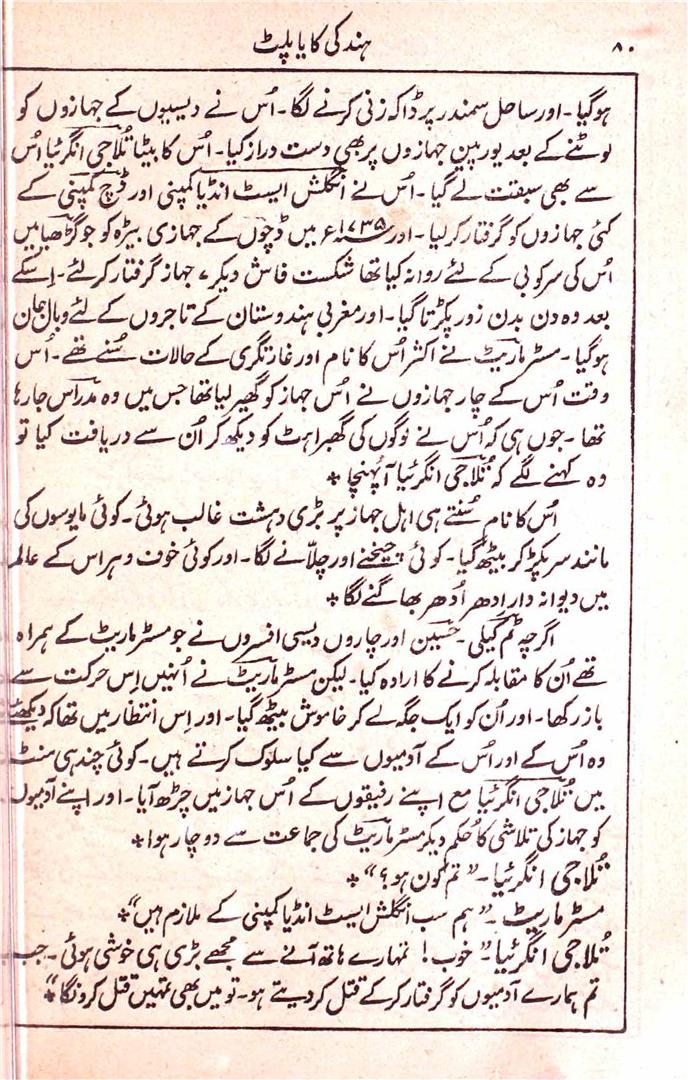 ۸۰
ہند کی کایا پلٹ
ہوگیا۔ اور ساحل سمندر پر ڈاکہ زنی کرنے لگا۔ اُس نے دیسیوں کے جہازوں کو
لوٹنے کے بعد یورپین جہازوں پر بھی دست دراز کیا۔ اُس کا بیٹا تُلاجی انگرئیا اُس
سے بھی سبقت لے گیا۔ اُس نے انگلش ایسٹ انڈیا کمپنی اور ڈچ کمپنی کے
کئی جہازوں کو گرفتار کر لیا۔ اور ۱۷۳۵ء میں ڈچوں کے جہازی بیڑہ کو جو گڑھیا میں
اُس کی سرکوبی کے لئے روانہ کیا تھا شکست فاش دیکر ۷ جہاز گرفتار کرلئے۔ اِسکے
بعد وہ دن بدن زور پکڑتا گیا۔ اور مغربی ہندوستان کے تاجروں کے لئے وبال جان
ہوگیا۔ مسٹر ماریٹ نے اکثر اُس کا نام اور غارتگری کے حالات سُنے تھے۔ اُس
وقت اُس کے چار جہازوں نے اُس جہاز کو گھیر لیا تھا جس میں وہ مدراس جا رہا
تھا۔ جوں ہی کہ اُس نے لوگوں کی گھبراہٹ کو دیکھ کر اُن سے دریافت کیا تو
وہ کہنے لگے کہ تُلاجی انگرئیا آپُہنچا *
اُس کا نام سُنتے ہی اہل جہاز پر بڑی دہشت غالب ہوئی۔ کوئی مایوسوں کی
مانند سر پکڑ کر بیٹھ گیا۔ کوئی چیخنے اور چلّانے لگا۔ اور کوئی خوف و ہراس کے عالم
میں دیوانہ وار اِدھر اُدھر بھاگنے لگا *
اگرچہ ٹم کیلی۔ حسین اور چاروں دیسی افسروں نے جو مسٹر ماریٹ کے ہمراہ
تھے اُن کا مقابلہ کرنے کا ارادہ کیا۔ لیکن مسٹر ماریٹ نے اُنہیں اِس حرکت سے
باز رکھا۔ اور اُن کو ایک جگہ لے کر خاموش بیٹھ گیا۔ اور اِس انتظار میں تھا کہ دیکھئے
وہ اُس کے اور اُس کے آدمیوں سے کیا سلوک کرتے ہیں۔ کوئی چند ہی منٹ
میں تُلاجی انگرئیا مع اپنے رفیقوں کے اُس جہاز میں چڑھ آیا۔ اور اپنے آدمیوں
کو جہاز کی تلاشی کا حُکم دیکر مسٹر ماریٹ کی جماعت سے دوچار ہوا *
تُلاجی انگرئیا۔ ”تم کون ہو؟“ *
مسٹر ماریٹ۔ ”ہم سب انگلش ایسٹ انڈیا کمپنی کے ملازم ہیں“ *
تُلاجی انگرئیا ”خوب! تمہارے ہاتھ آنے سے مجھے بڑی ہی خوشی ہوئی۔ جب
تم ہمارے آدمیوں کو گرفتار کرکے قتل کردیتے ہو۔ تو میں بھی تمہیں قتل کرونگا“ *